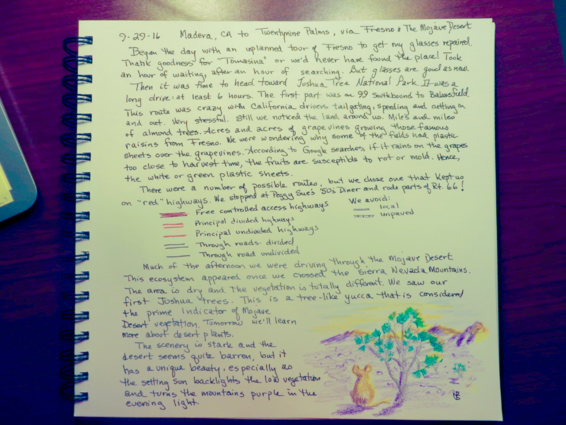 9-29-16 Madera, CA to Twentynine Palms, via Fresno & The Mojave Desert
Began the day with an unplanned tour of Fresno to get my glasses repaired.
Thank goodness for "Tomasina" or we'd never have found the place! Took
an hour of waiting, after an hour of searching. But glasses are good as new.
Then it was time to head toward Joshua Tree National Park. It was a
long drive - at least 6 hours. The first part was on 99 southbound to Bakersfield.
This route was crazy with California drivers tailgating, speeding and cutting in
and out. Very stressful. Still we noticed the land around us. Miles and miles
of almond trees. Acres and acres of grapevines growing those famous
raisins from Fresno. We were wondering why some of the fields had plastic
sheets over the grapevines. According to Google searches, if it rains on the grapes
too close to harvest time, the fruits are susceptible to rot or mold. Hence,
the white or green plastic sheets.
There were a number of possible routes, but we chose one that kept us
on "red" highways. We stopped at Peggy Sue's 50's Diner and rode parts of Rt. 66!
Free controlled access highways We avoid:
Principal divided highways local
Principal undivided highways unpaved
Through roads - divided
Through road undivided
Much of the afternoon we were driving through the Mojave Desert.
This ecosystem appeared once we crossed the Sierra Nevada Mountains.
The area is dry and the vegetation is totally different. We saw our
first Joshua trees. This is a tree-like yucca that is considered
the prime indicator of Mojave
Desert vegetation. Tomorrow we'll learn
more about desert plants.
The scenery is stark and the
desert seems quite barren, but it
has a unique beauty, especially as
the setting sun backlights the low vegetation
and turns the mountains purple in the
evening light.